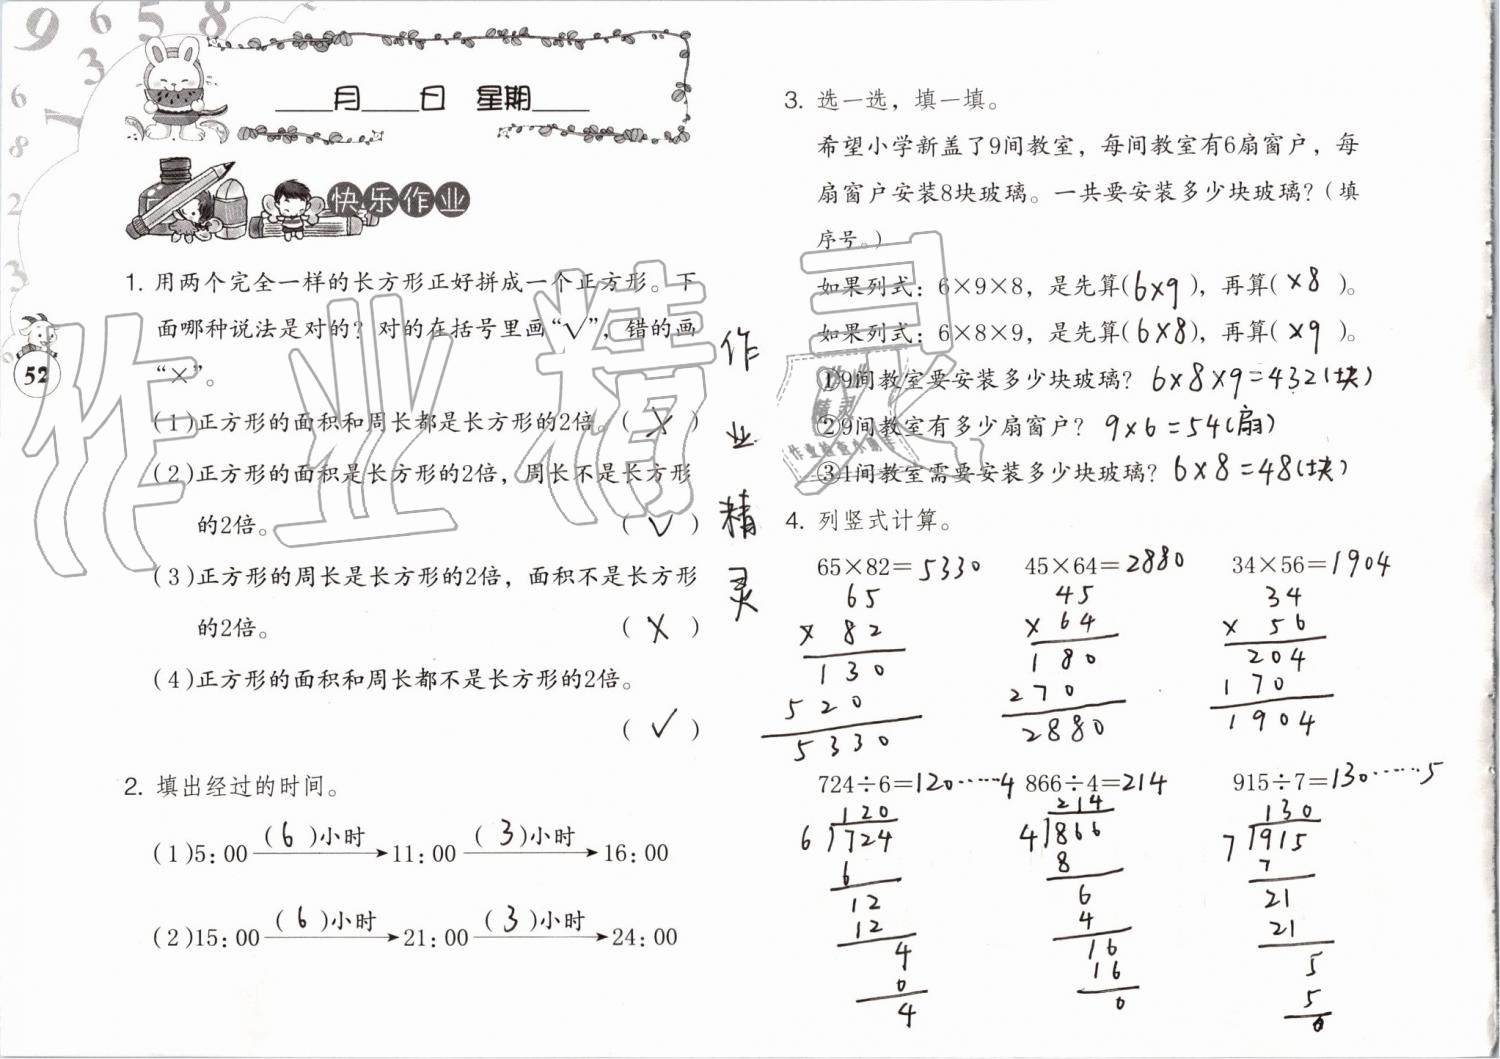 9 3 6 5 8
6
1
8
2
3
____月____日 星期____
快乐作业
1. 用两个完全一样的长方形正好拼成一个正方形。下
面哪种说法是对的？对的在括号里画“√”，错的画
“×”。
(1)正方形的面积和周长都是长方形的2倍。( × )
(2)正方形的面积是长方形的2倍，周长不是长方形
的2倍。 ( √ )
(3)正方形的周长是长方形的2倍，面积不是长方形
的2倍。 ( × )
(4)正方形的面积和周长都不是长方形的2倍。
( √ )
2. 填出经过的时间。
(1)5：00 ( 6 )小时 11：00 ( 3 )小时 16：00
(2)15：00 ( 6 )小时 21：00 ( 3 )小时 24：00
52
作业精灵
作业精灵
3. 选一选，填一填。
希望小学新盖了9间教室，每间教室有6扇窗户，每
扇窗户安装8块玻璃。一共要安装多少块玻璃？(填
序号。)
如果列式：6×9×8，是先算(6×9)，再算( ×8 )。
如果列式：6×8×9，是先算(6×8)，再算( ×9 )。
①9间教室要安装多少块玻璃？ 6×8×9=432(块)
②9间教室有多少扇窗户？ 9×6=54(扇)
③1间教室需要安装多少块玻璃？ 6×8=48(块)
4. 列竖式计算。
65×82=5330 45×64=2880 34×56=1904
65 45 34
× 82 × 64 × 56
130 180 204
520 270 170
5330 2880 1904
724÷6=120……4 866÷4=214 915÷7=130……5
120 214 130
6 724 4 866 7 915
6 8 7
12 6 21
12 4 21
4 16 5
0 16 5
4 0 0